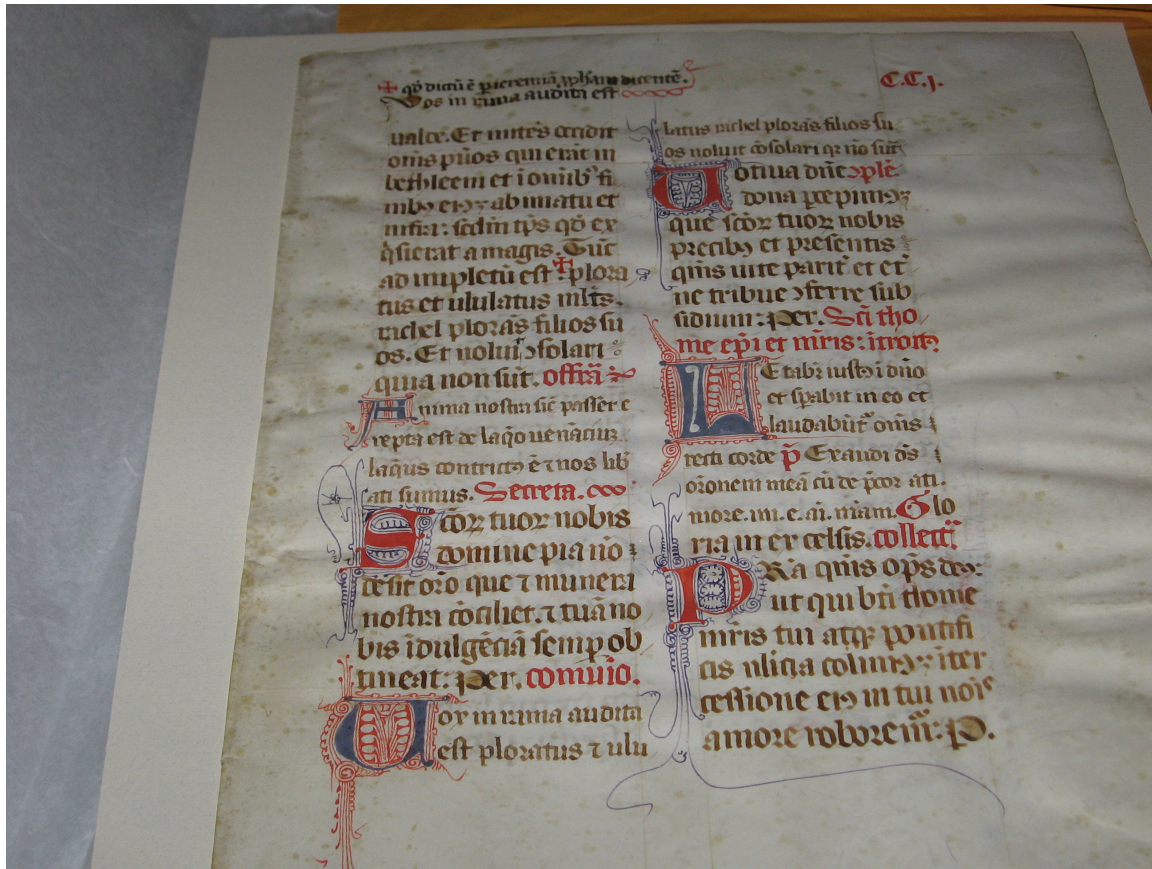 ✝ qđ dictū ē p ieremiā ꝓphetam dicentē.
Vox in rama audita est
C.C.j.
ualde. Et mittēs occidit
om̄s pūos qui erāt in
bethleem et ī omīb' fi
nibꝫ eiꝰ ⁊ ab imatu et
infra: scdm tp̄s qđ ex
q̄sierat a magis. Tūc
ad impletū est ✝ plora
tus et ululatus mlt̄s.
rachel plorās filios su
os. Et noluit ↄsolari
quia non sūt. offr̄ā
Anima nostra sic̄ passer e
repta est de laq̄o uenātiū
laqus contritꝰ ē ⁊ nos lib
ati sumus. Secreta.
Scōꝝ tuoꝝ nobis
domine pia nō
desit orō que ⁊ munera
nostra cōciliet. ⁊ tuā no
bis īdulgēciā semp ob
tineat: Per. comuīo.
Vox in rama audita
est ploratus ⁊ ulu
latus rachel plorās filios su
os noluit cōsolari qꝛ nō sūt
Votiua dn̄e ↄplē
dona p̄cepimꝰ
que scōꝝ tuoꝝ nobis
precibꝫ et presentis
qm̄s uite parit̄ et et̄
ne tribue ↄferre sub
sidium: Per. Sc̄i tho
me ep̄i et mr̄is: itroitꝰ
Letabr̄ iustꝰ ī dn̄o
et sp̄abit in eo et
laudabūt̄ om̄s
recti corde p̄ Exaudi d̄s
or̄onem meā cū de p̄cor ati.
more. in. e. ai. mām. Glo
ria in ex celsis. collect̄
PRa qm̄s op̄s deꝰ:
ut qui bt̄i thome
mr̄is tui atqꝫ pontifi
cis colimꝰ: īter
cessione eiꝰ in tui noīs
amore roborem̄: P.